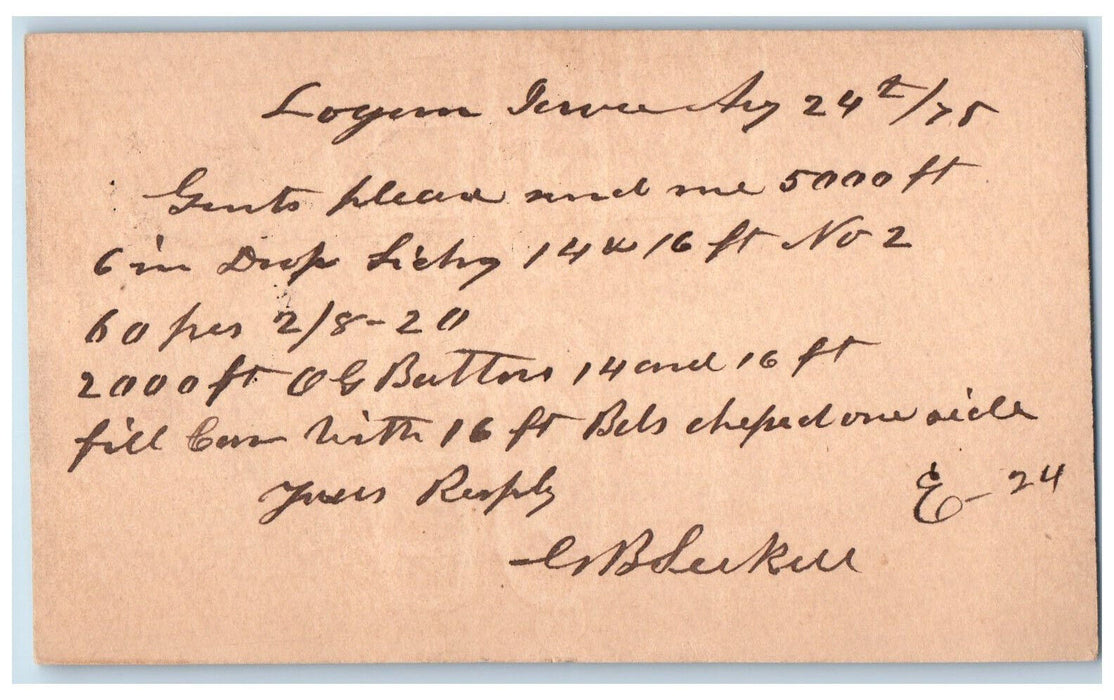 Logan Iowa Aug 24th/75
Gents please send me 5000 ft
6 in Drop Siding 14 & 16 ft No 2
60 pcs 2/8-20
2000 ft OG Battons 14 and 16 ft
fill Carr with 16 ft Bds one side
Yours Respfly
E - 24